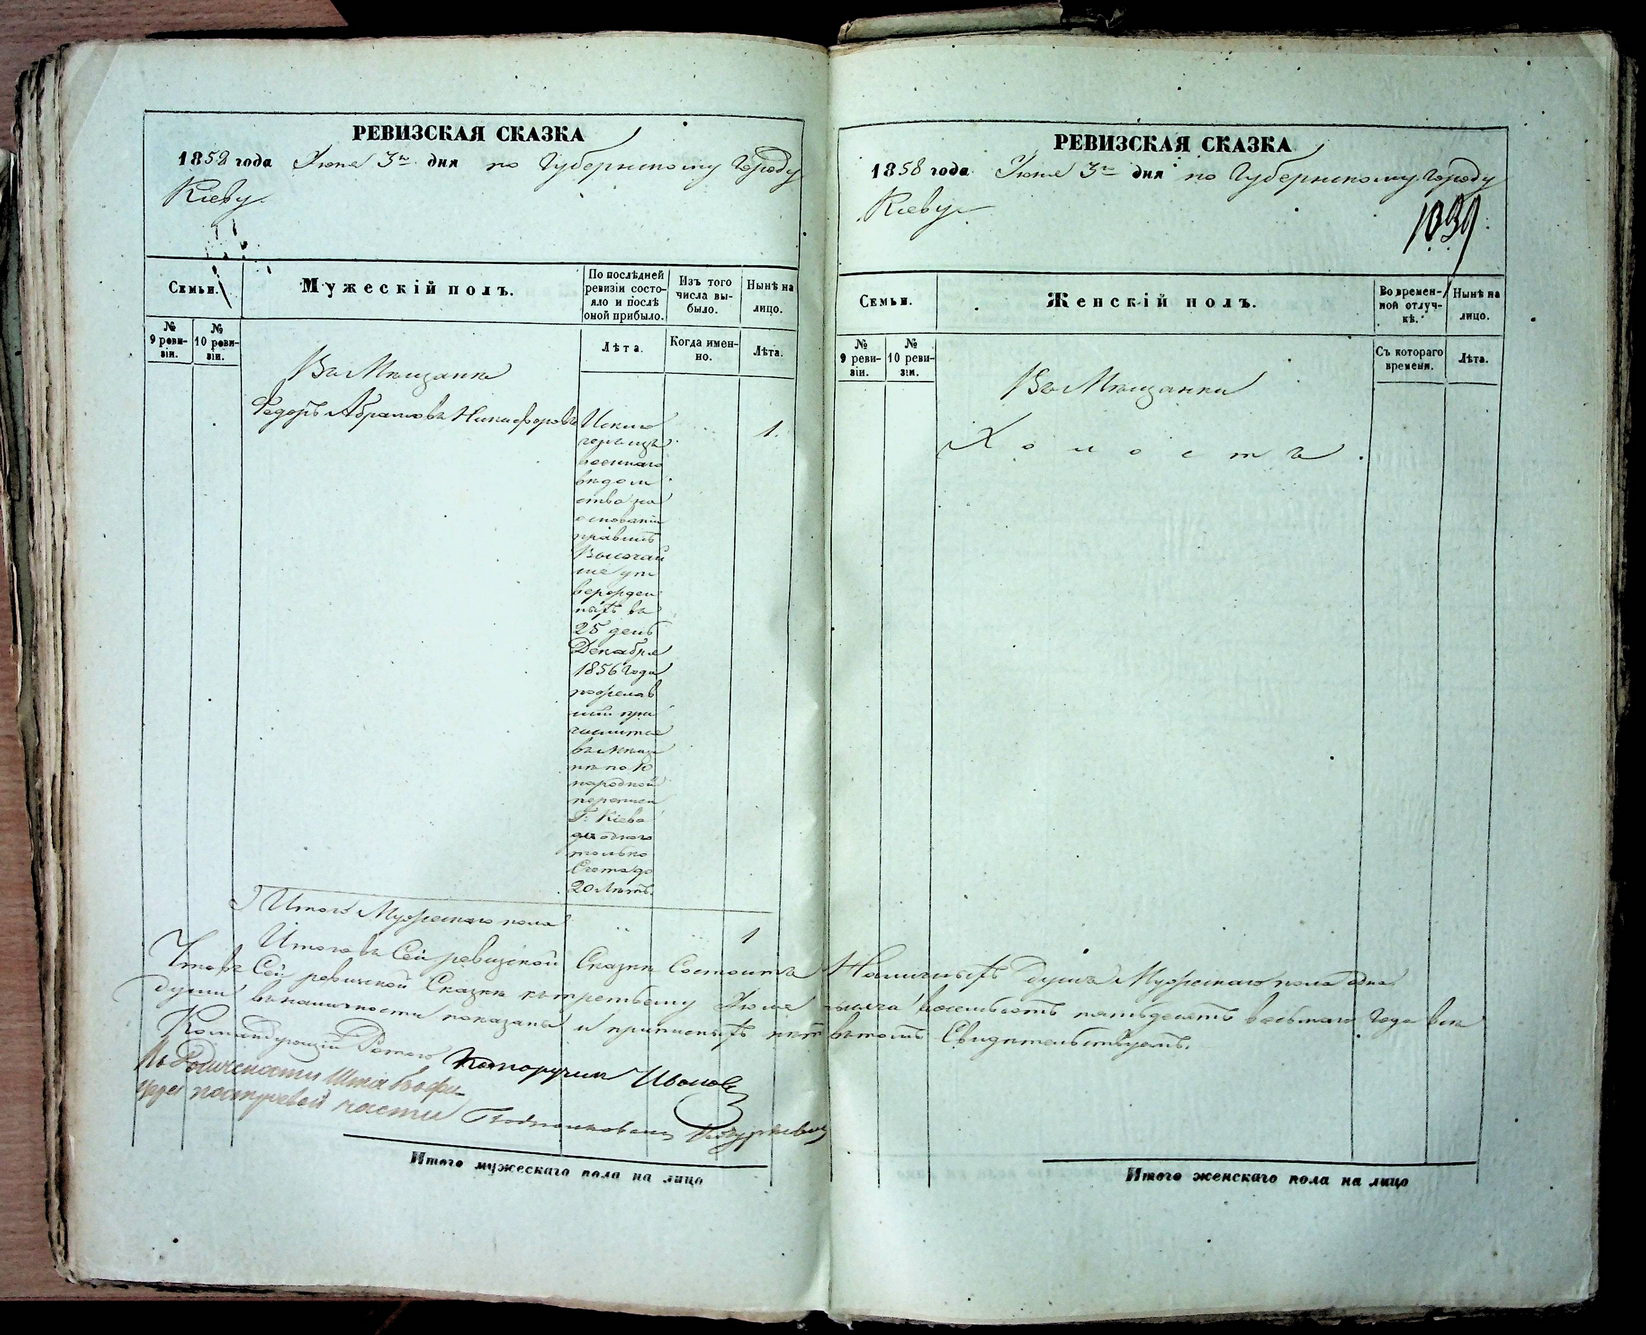 РЕВИЗСКАЯ СКАЗКА
1858 года Июня 3го дня по Губернскому Городу
Кіеву.
Семьи.
Мужескій полъ.
По послѣдней
ревизіи состо-
яло и послѣ
оной прибыло.
Изъ того
числа вы-
было.
Нынѣ на
лицо.
№
9 реви-
зіи.
№
10 реви-
зіи.
Лѣта.
Когда имен-
но.
Лѣта.
Въ Мѣщане
Федоръ Абрамовъ Никифоровъ
1.
военнаго
вѣдом
ства на
основаніи
правилъ
Высочай
ше ут
вержден
ныхъ въ
25 день
Декабря
1856 года
пожелав
шій при
числится
въ Мѣща
не по 10
народной
переписи
Г. Кіева
для одного
только
Счета до
20 Лѣтъ.
Итого Мужескаго пола
1
Итого въ Сей ревизской Сказкѣ Состоитъ Наличныхъ Душъ Мужескаго пола одна.
Что въ Сей ревизской Сказкѣ къ третьему Июня тысяча восемьсотъ пятьдесятъ восьмаго Года всѣ
души въ наличности показаны и прописныхъ нѣтъ въ томъ Свидѣтельствуемъ.
Командующій Ротою Подпоручикъ Ивановъ
По Должности Штабъ офи-
цера по
части Подполковникъ
Итого мужескаго пола на лицо
РЕВИЗСКАЯ СКАЗКА
1858 года Июня 3го дня по Губернскому Городу
Кіеву
1039
Семьи.
Женскій полъ.
Во времен-
ной отлуч-
кѣ.
Нынѣ на
лицо.
№
9 реви-
зіи.
№
10 реви-
зіи.
Съ котораго
времени.
Лѣта.
Въ Мѣщанки
Холостъ.
Итого женскаго пола на лицо